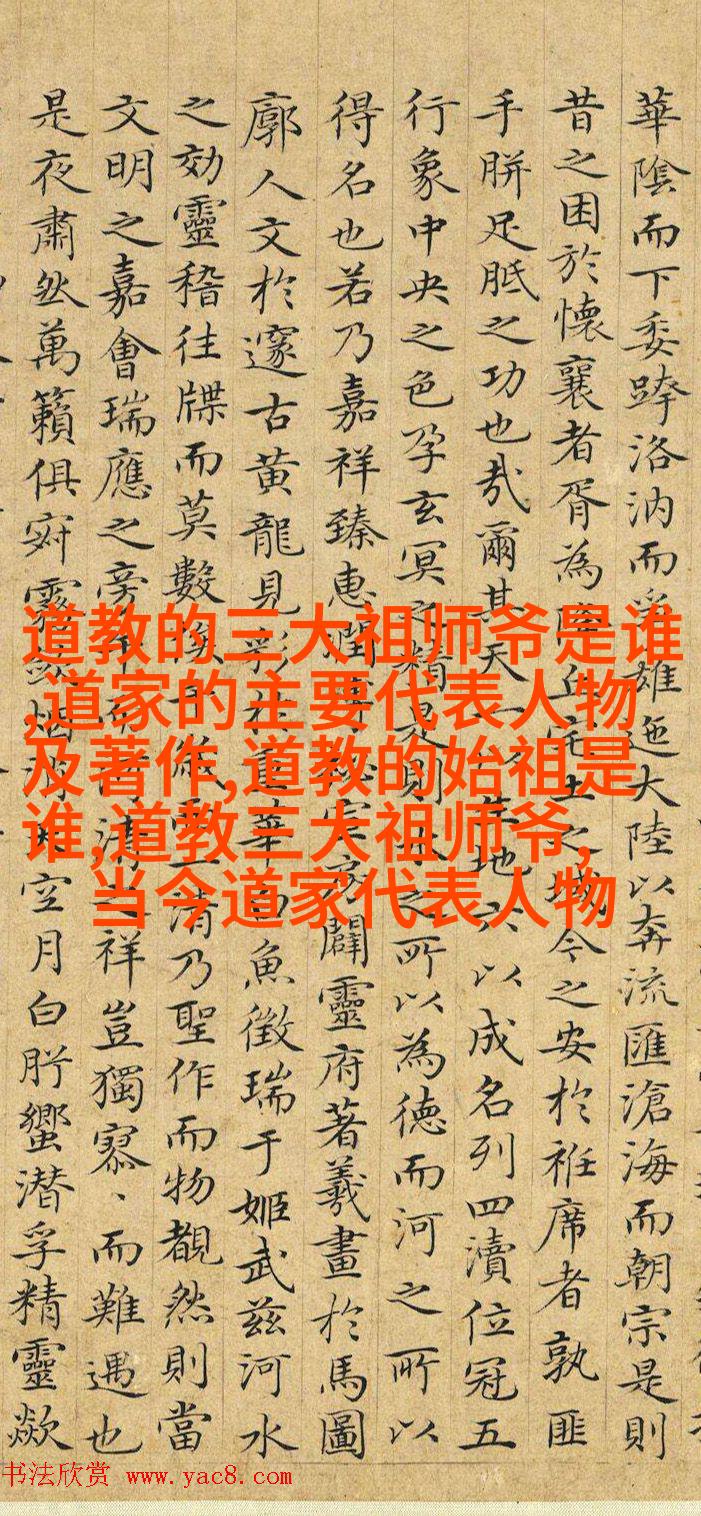 華陰而下委跨洛汭而雄迤大陸以奔流匯滄海而朝宗是則
昔之困於懷襄者胥為降丘宅土之域今之安於袵席者孰匪
手胼足胝之功也哉爾其天一以生地六以成名列四瀆位冠五
行象中央之色孕玄冥之精是則水之所以為德而河之所以
得名也若乃嘉祥臻惠潤闢靈府著羲畫於馬圖
廓人文於邃古黃龍見彩於重華白魚徵瑞于姬武茲河水
之効靈稽往牒而莫數俟千歲而一清乃聖作而物覩然則當
文明之嘉會瑞應之旁而河清之祥豈獨寥、而難遇也
是夜肅然萬籟俱寂露空月白肸蠁潛孚精靈歘
道教的三大祖师爷是谁
,道家的主要代表人物
及著作,道教的始祖是
谁,道教三大祖师爷,
当今道家代表人物
书法欣赏 www.yac8.com